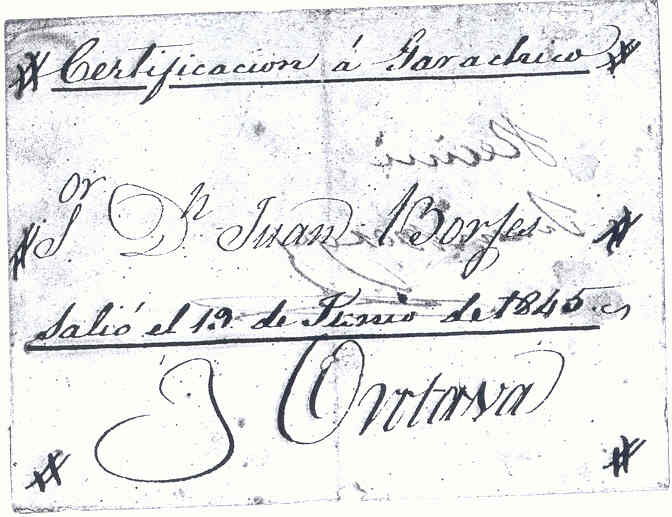 Certificacion á Garachico
Sor Dn Juan Borges
Salió el 19 de Junio de 1845.
Orotava